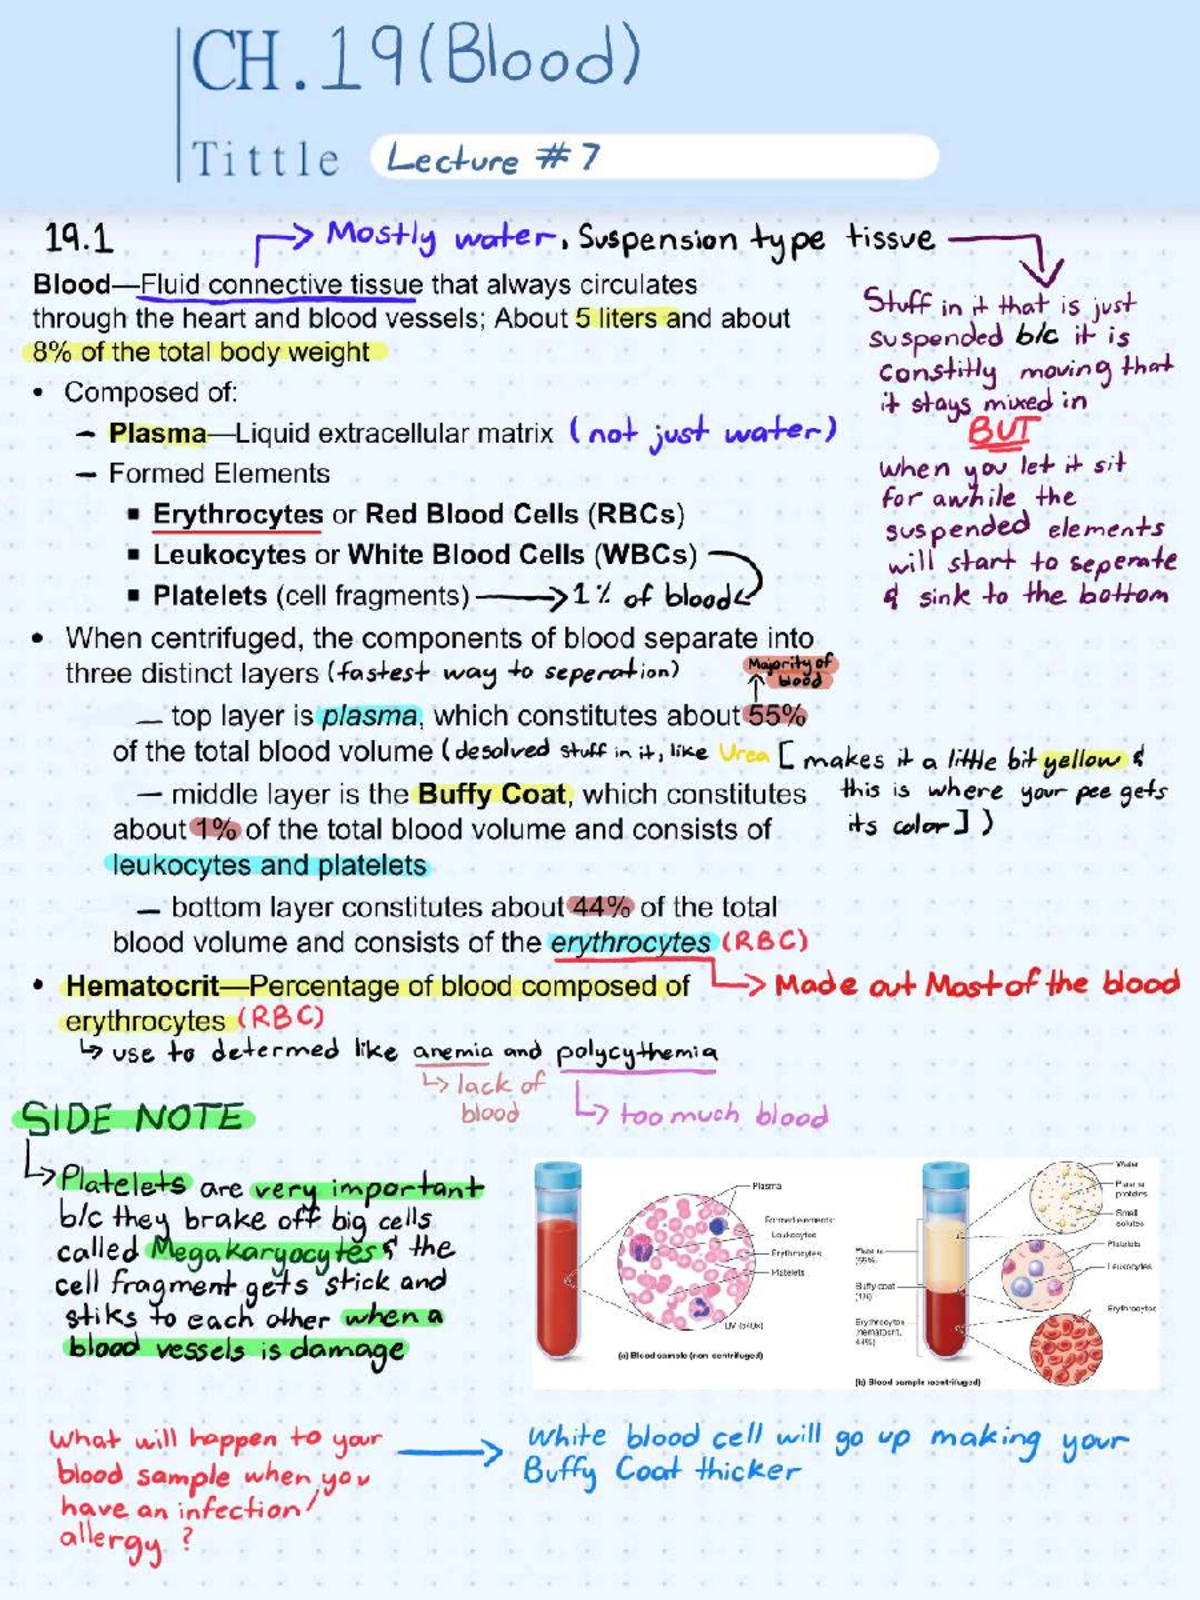 CH. 19 (Blood)
Tittle Lecture #7
19.1
Mostly water, Suspension type tissue
Blood—Fluid connective tissue that always circulates
through the heart and blood vessels; About 5 liters and about
8% of the total body weight
Stuff in it that is just
suspended b/c it is
constitly moving that
it stays mixed in
BUT
when you let it sit
for awhile the
suspended elements
will start to seperate
& sink to the bottom
• Composed of:
– Plasma—Liquid extracellular matrix (not just water)
– Formed Elements
▪ Erythrocytes or Red Blood Cells (RBCs)
▪ Leukocytes or White Blood Cells (WBCs)
▪ Platelets (cell fragments) → 1% of blood
• When centrifuged, the components of blood separate into
three distinct layers (fastest way to seperation)
Majority of
blood
– top layer is plasma, which constitutes about 55%
of the total blood volume (desolved stuff in it, like Urea [makes it a little bit yellow &
this is where your pee gets
its color])
– middle layer is the Buffy Coat, which constitutes
about 1% of the total blood volume and consists of
leukocytes and platelets
– bottom layer constitutes about 44% of the total
blood volume and consists of the erythrocytes (RBC)
Made out Most of the blood
• Hematocrit—Percentage of blood composed of
erythrocytes (RBC)
↳ use to determed like anemia and polycythemia
↳ lack of
blood
↳ too much blood
SIDE NOTE
↳ Platelets are very important
b/c they brake off big cells
called Megakaryocytes & the
cell fragment gets stick and
stiks to each other when a
blood vessels is damage
Plasma
Formed elements:
Leukocytes
Erythrocytes
Platelets
LM (640x)
(a) Blood sample (non centrifuged)
Water
Plasma
proteins
Small
solutes
Plasma
(55%)
Platelets
Leukocytes
Buffy coat
(1%)
Erythrocytes
Erythrocytes
(hematocrit,
44%)
(b) Blood sample (centrifuged)
What will happen to your
blood sample when you
have an infection/
allergy?
White blood cell will go up making your
Buffy Coat thicker